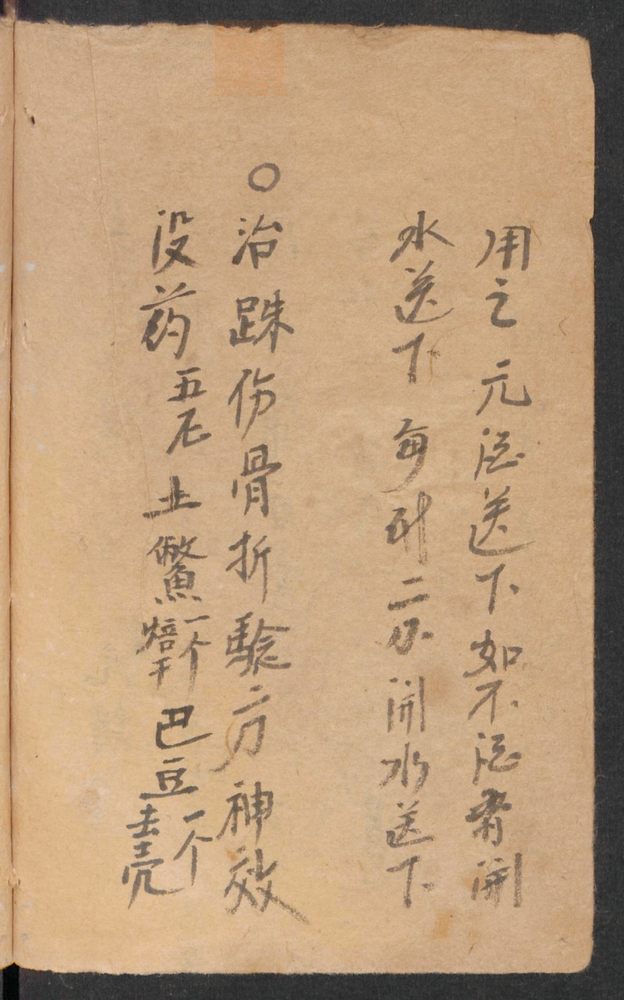 用之元酒送下如不酒者開
水送下每用二分開水送下
○治跌伤骨折驗方神效
没药五分土鱉一个焙干巴豆一个去壳